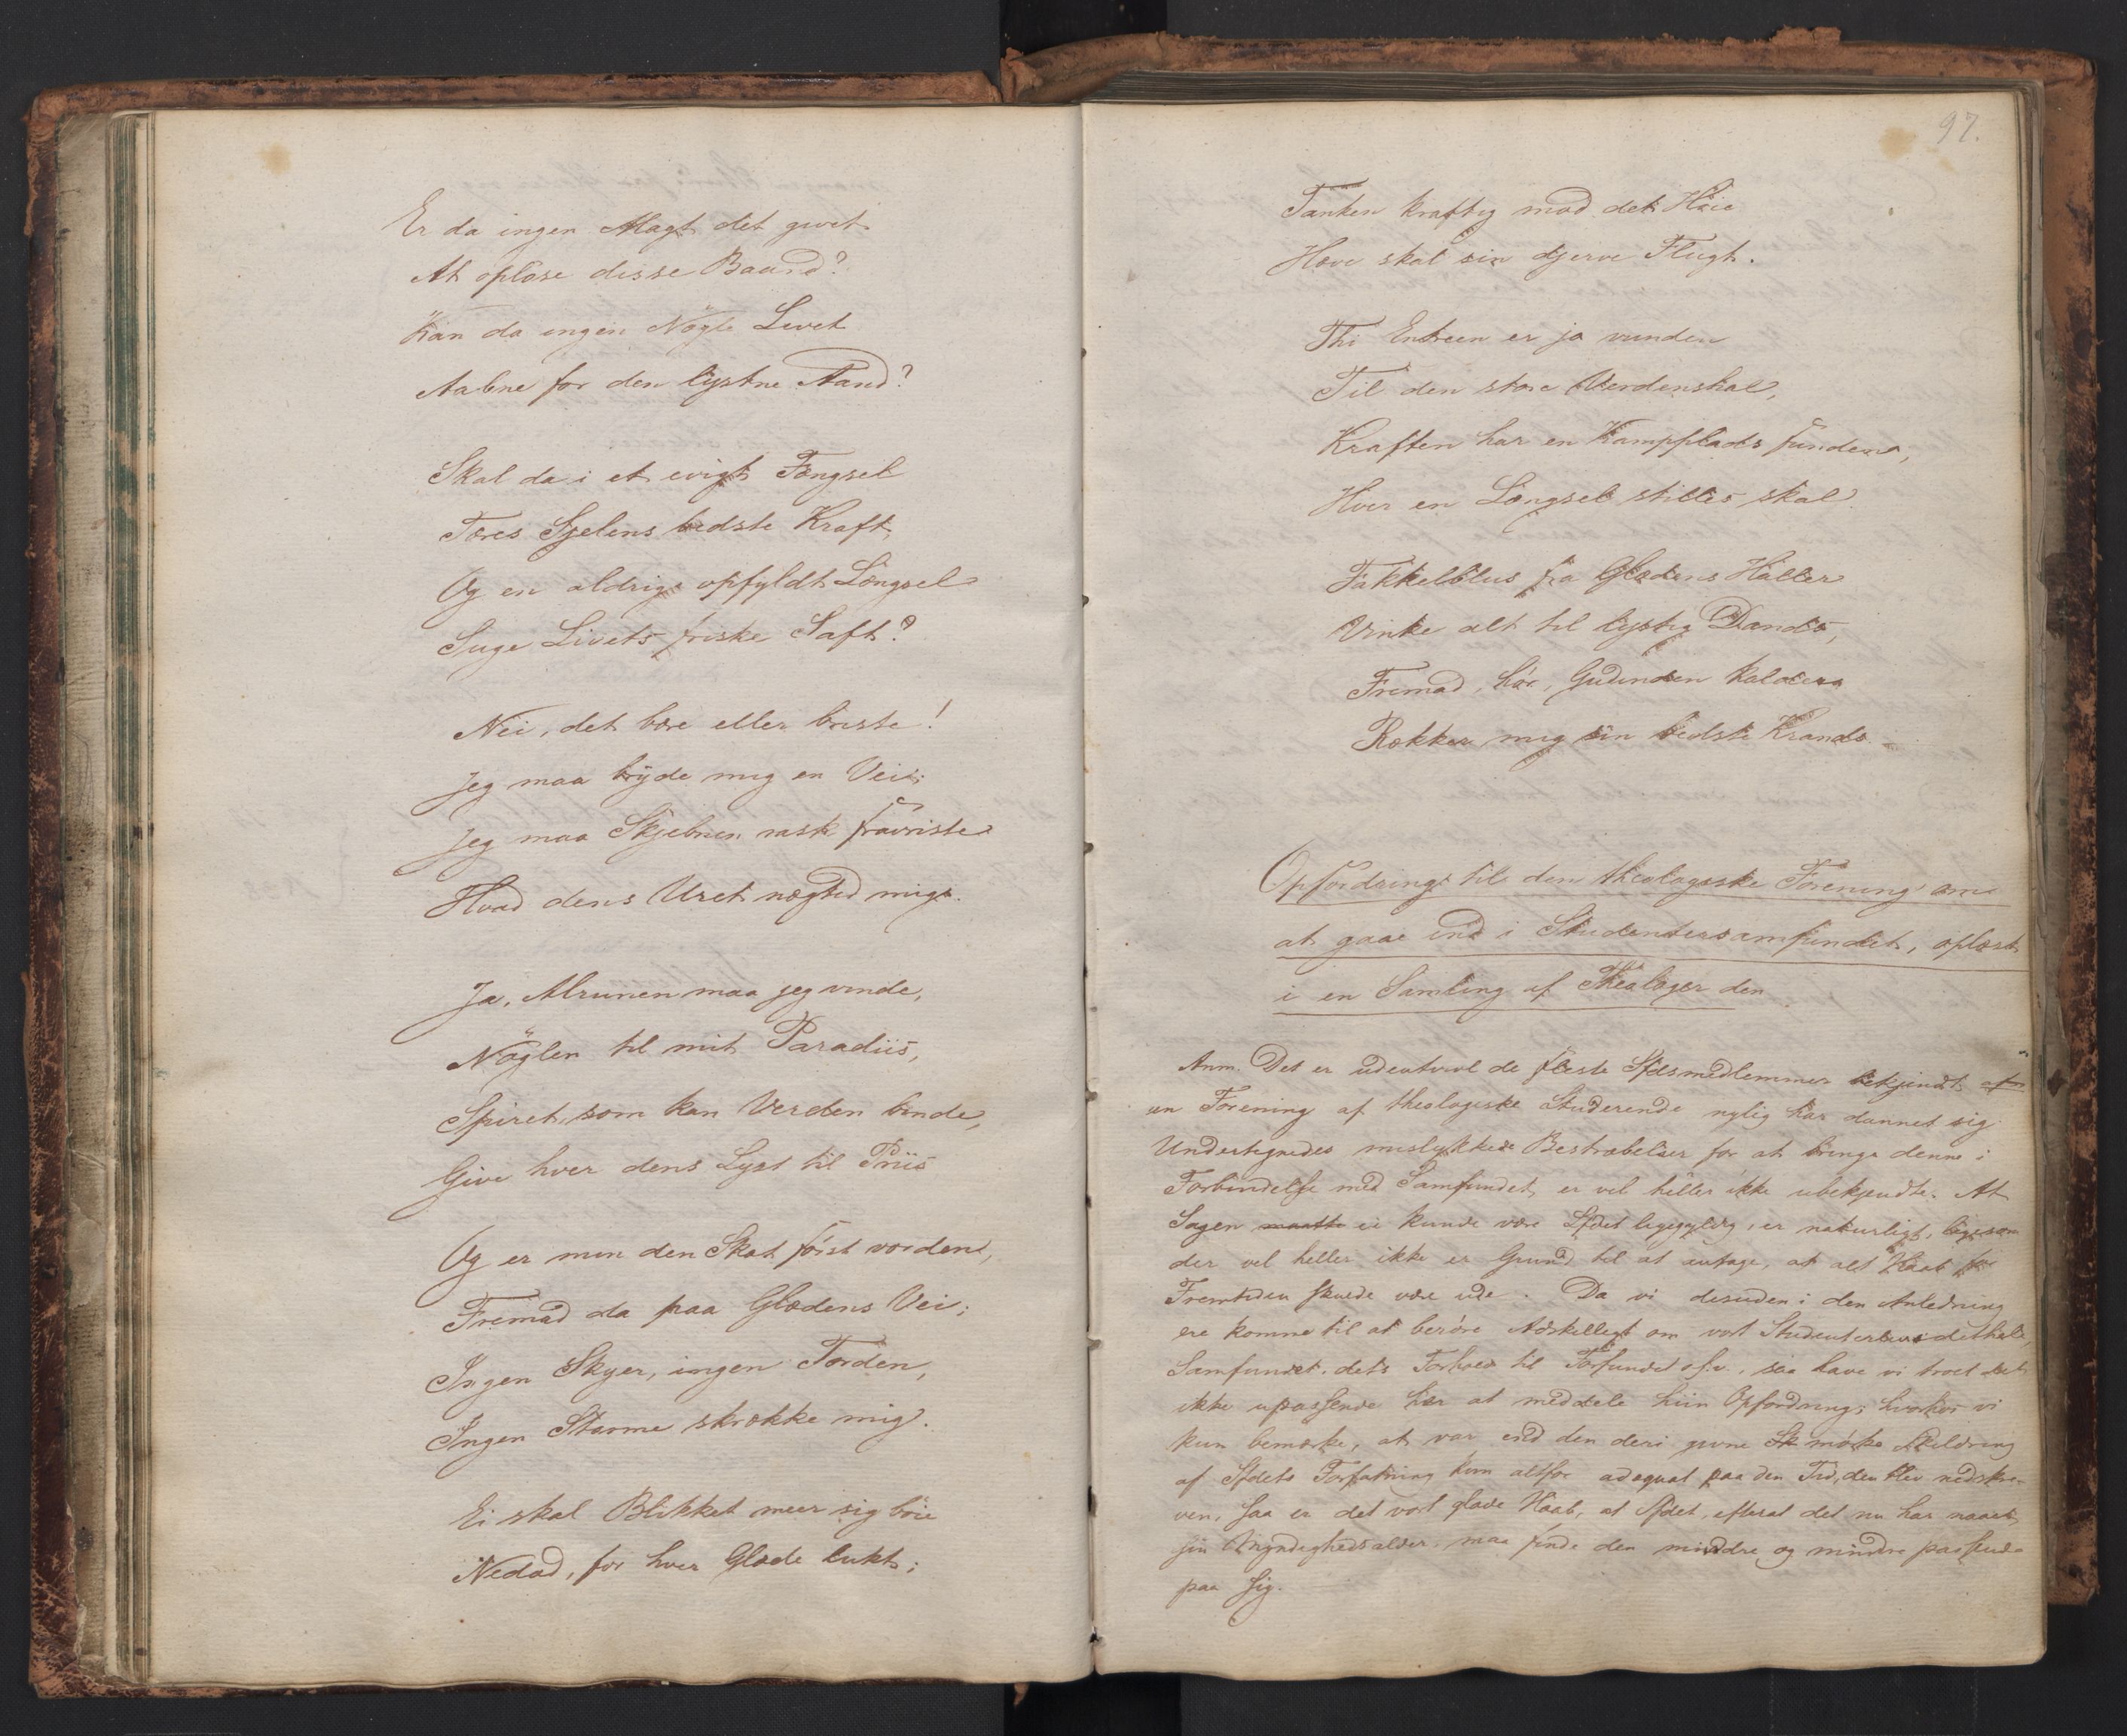 Er da ingen Magt det givet
At opløse disse Baand?
Kan da ingen Nøgle Livet
Aabne for den lystne Aand?
Skal da i et evigt Fængsel
Tæres Sjelens bedste Kraft,
Og en aldrig opfyldt Længsel
Suge Livets friske Saft?
Nei, det bære eller briste!
Jeg maa bryde mig en Vei;
Jeg maa Skjebnen rask fravriste
Hvad dens Uret nægted mig.
Ja, Alrunen maa jeg vinde,
Nøglen til mit Paradiis,
Spiret, som kan Verden binde,
Give hver dens Lyst til Priis
Og er min den Skat først vorden,
Fremad da paa Glædens Vei;
Ingen Skyer, ingen Torden,
Ingen Storme skrække mig.
Ei skal Blikket meer sig bøie
Nedad, for hver Glæde lukt;
97.
Tanken kraftig mod det Høie
Hæve skal sin djerve Flugt.
Thi Entreen er jo vunden
Til den store Verdenshal,
Kraften har en Kampplads funden,
Hver en Længsel stilles skal.
Fakkelblus fra Glædens Haller
Vinke alt til lystig Dands,
Fremad, hør, Gudinden kalder
Rækker mig sin bedste Krands.
Opfordring til den theologiske Forening om
at gaae ind i Studentersamfundet, oplæst
i en Samling af Theologer den
Anm. Det er udentvivl de fleste Sfdsmedlemmer bekjendt at
en Forening af theologiske Studerende nylig har dannet sig.
Undertegnedes mislykkede Bestræbelser for at bringe denne i
Forbindelse med Samfundet, er vel heller ikke ubekjendte. At
Sagen maatte ei kunde være Sfdet ligegyldig, er naturligt, ligesom
der vel heller ikke er Grund til at antage, at alt Haab for
Fremtiden skulde være ude. Da vi desuden i den Anledning
ere komne til at berøre Adskilligt om vort Studenterliv i det hele,
Samfundet, dets Forhold til Forbundet o.s.v., saa have vi troet det
ikke upassende her at meddele hiin Opfordring; hvorhos vi
kun bemærke, at var end den deri givne Sk mørke Skildring
af Sfdets Forfatning kun altfor adequat paa den Tid, den blev nedskre-
ven, saa er det vort glade Haab, at Sfdet, efterat det nu har naaet
sin Myndighedsalder, maa finde den mindre og mindre passende
paa sig.